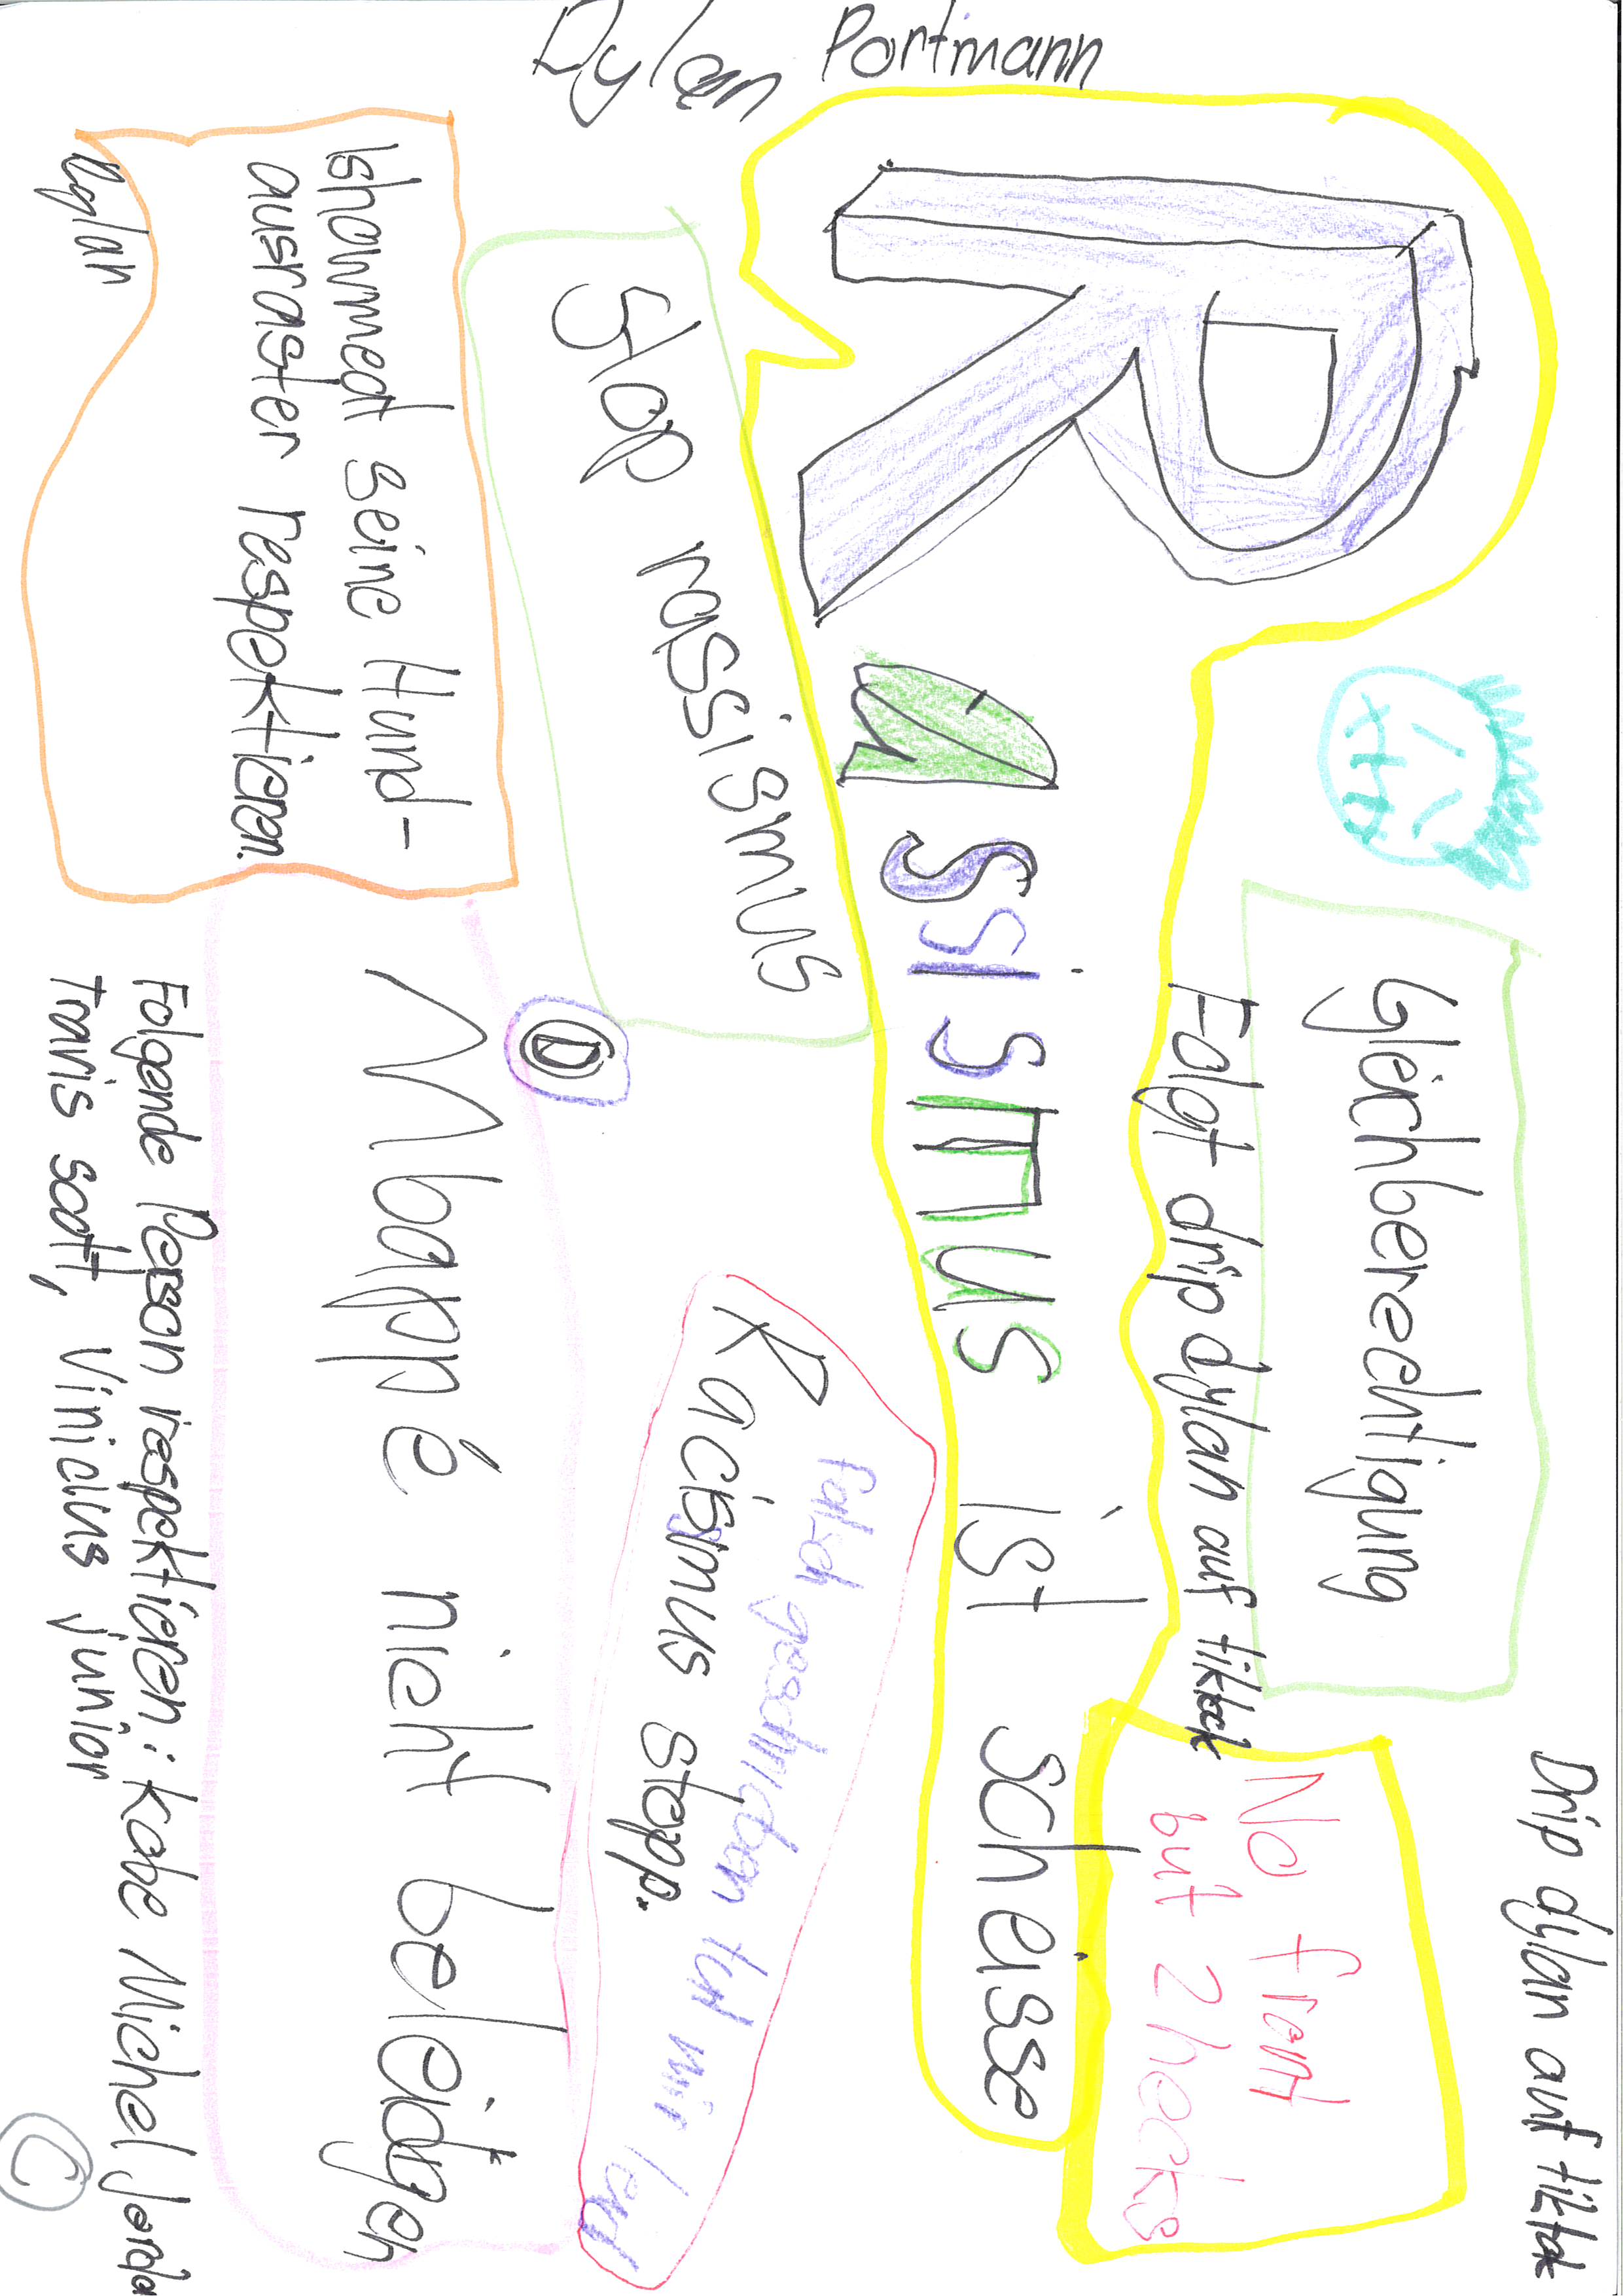 Dylan Portmann
Drip dylan auf tiktok
Gleichberechtigung
Folgt drip dylan auf tiktock
No front
but 2 hocks
Rassismus ist scheisse
Stop rassismus
Racismus stopp.
falsch geschrieben tud mir leid
Ishowmed seine Hund-
ausraster respektieren.
Dylan
Mbappé nicht beleidigen
Folgende Person respektieren: Kobe Michel Jordan
Travis scott, Vinicius junior
C